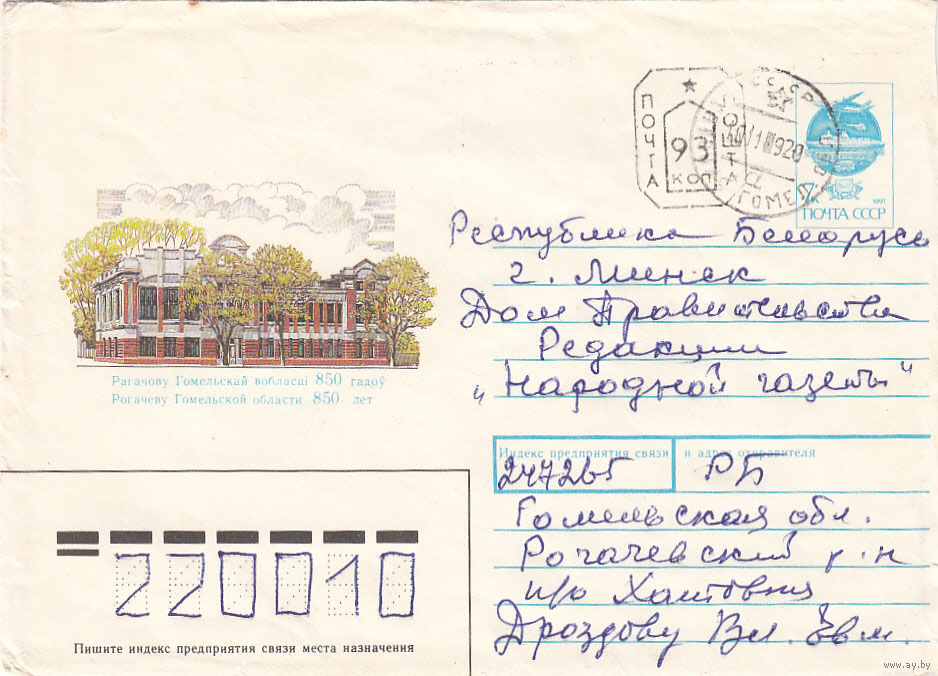 ПОЧТА
ПОШТА
93
КОП
СССР
ГОМЕЛЬ
1991
ПОЧТА СССР
Республика Беларусь
г. Минск
Дом Правительства
Редакции
"Народной газеты"
Рагачову Гомельскай вобласці 850 гадоў
Рогачеву Гомельской области 850 лет
Индекс предприятия связи и адрес отправителя
247265 РБ
Гомельская обл.
Рогачевский р-н
п/о Хатовня
Дроздову Вл. Евм.
220010
Пишите индекс предприятия связи места назначения
www.ay.by